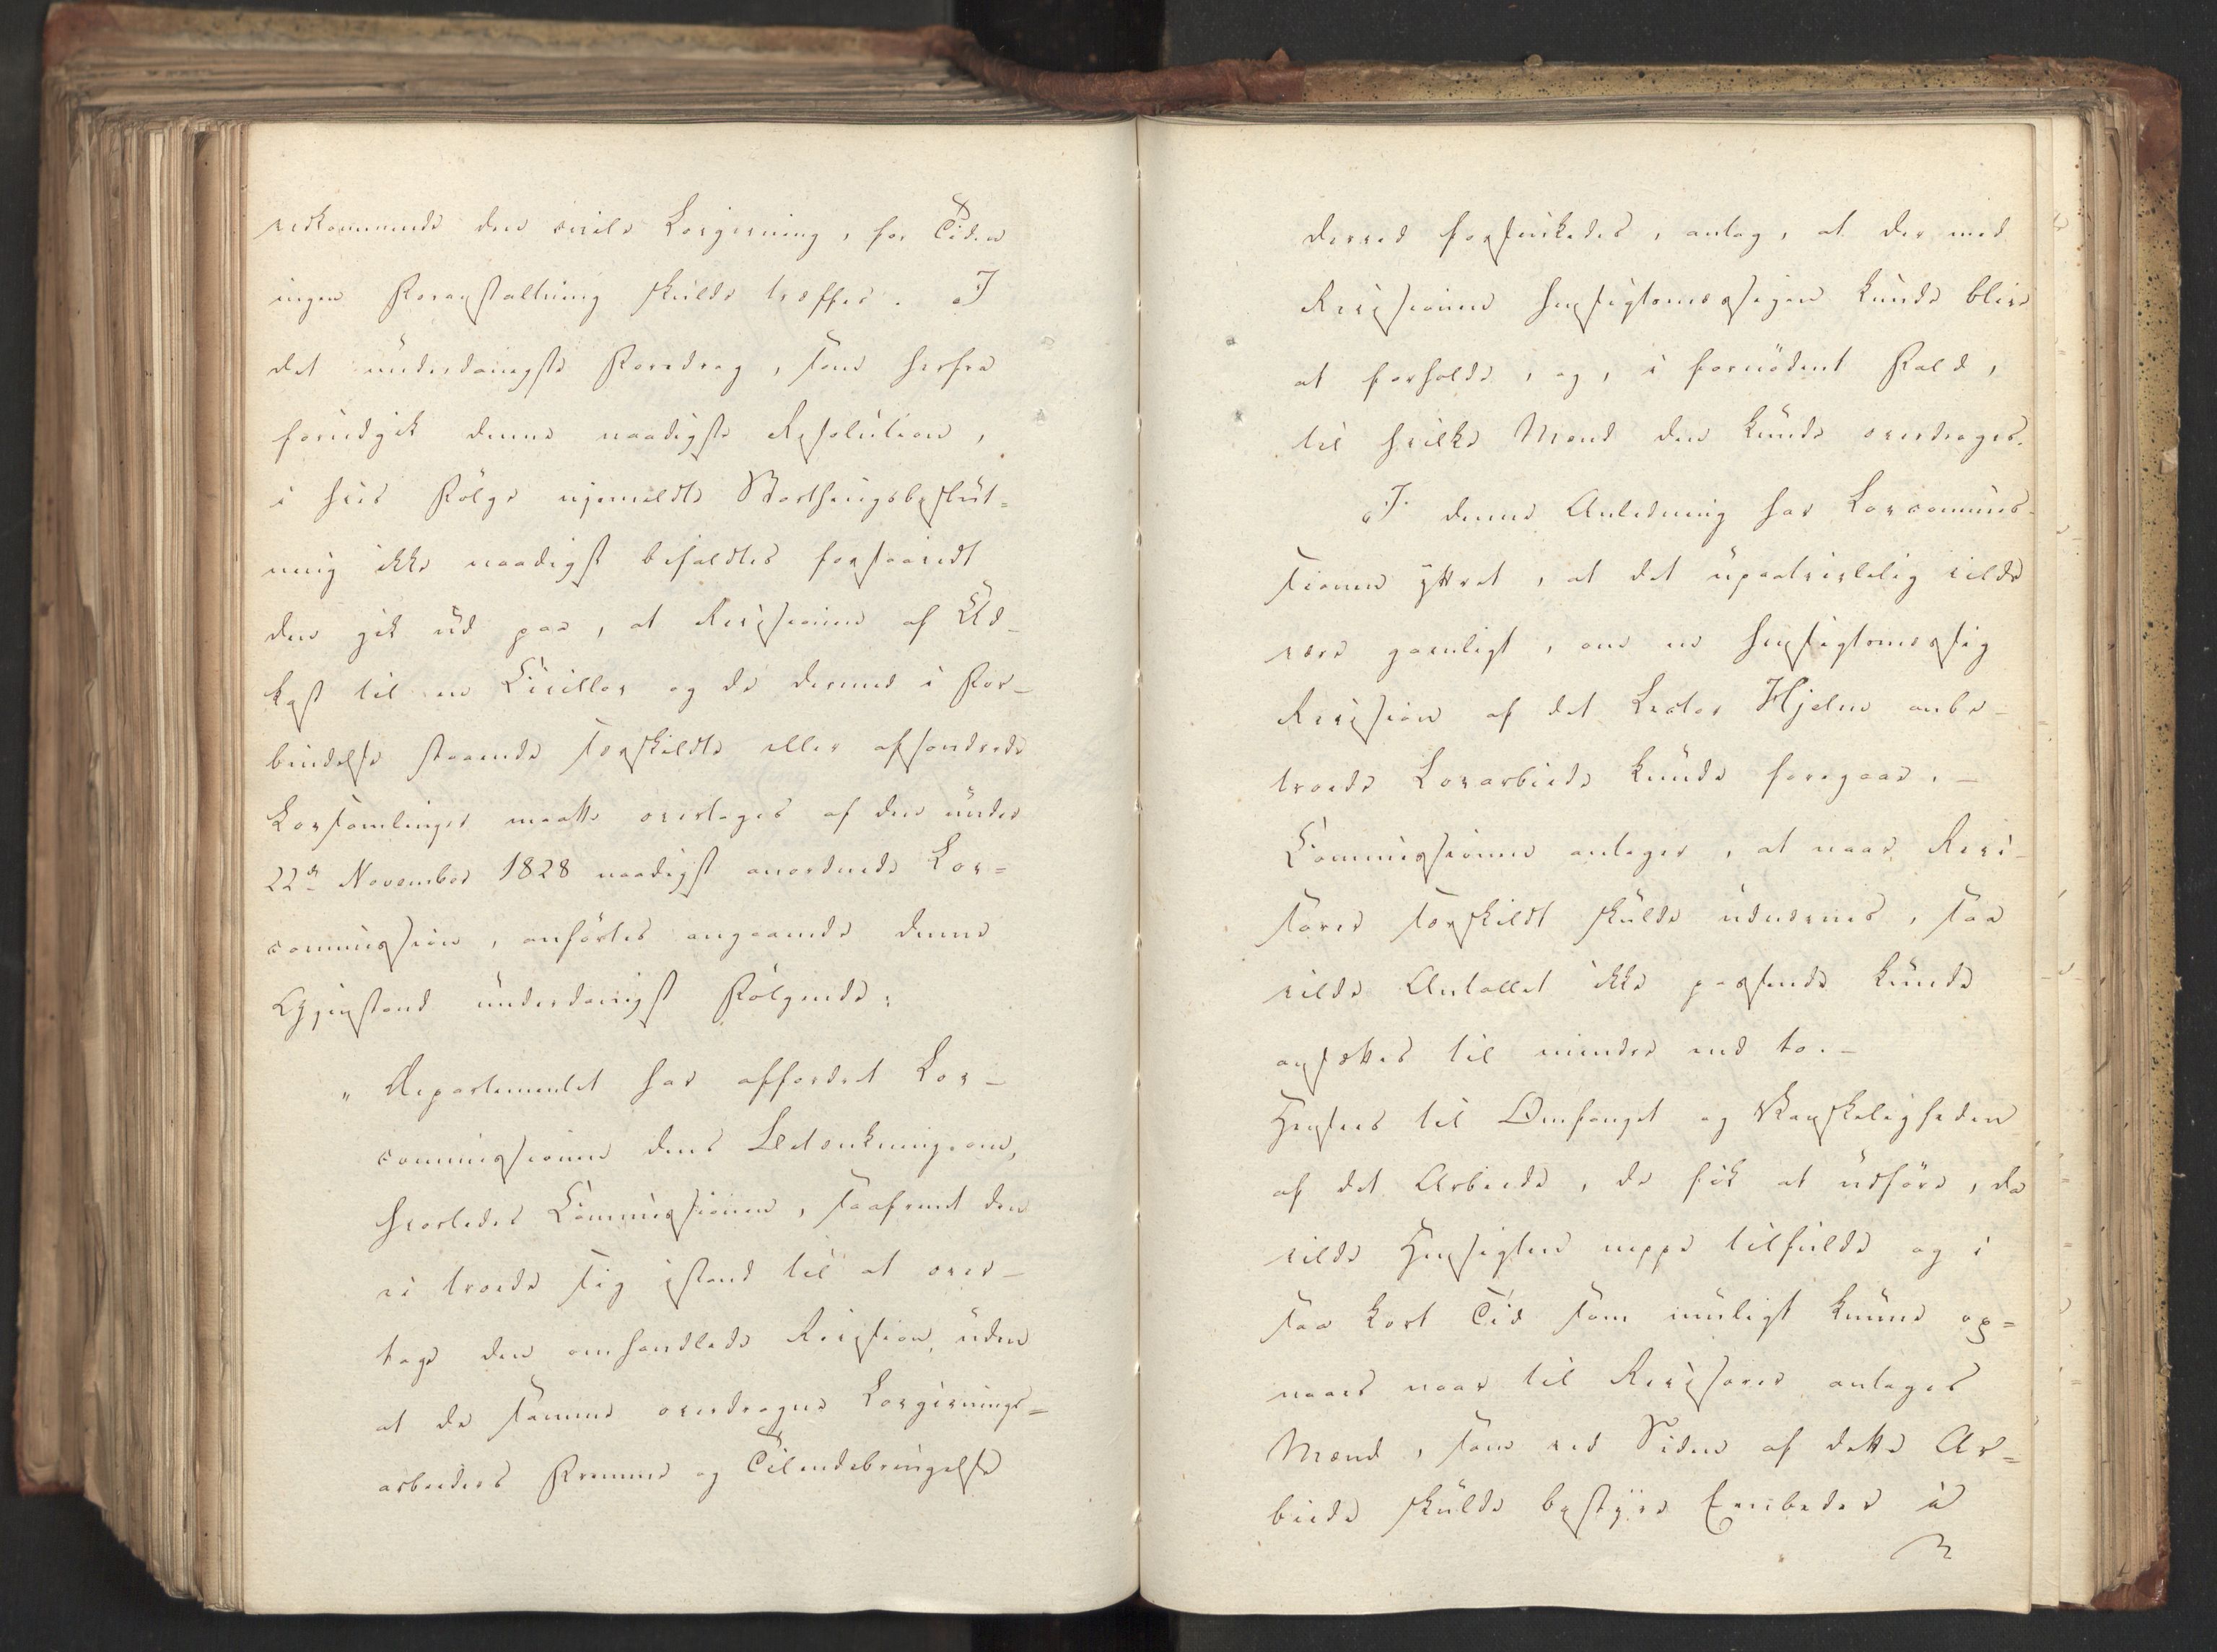 vedkommende den civile Lovgivning, for Tiden
ingen Foranstaltning skulde træffes. I
det underdanigste Foredrag, som herfra
forudgik denne naadigste Resolution,
i hvis Følge ujemeldte Storthingsbeslut=
ning ikke naadigst befaldtes forsaavidt
den gik ud paa, at Revisionen af Ud-
kast til en Civillov og de dermed i For-
bindelse staaende særskildte eller afsondrede
Lovsamlinger maatte overtages af den under
22de November 1828 naadigst anordnede Lov=
commission, anførtes angaaende denne
Gjenstand underdanigst Følgende:
"Departementet har affordret Lov-
commissionen dens Betænkning om,
hvorledes Commissionen, saafremt den
ei troede sig istand til at over-
tage den omhandlede Revision, uden
at de samme overdragne Lovgivnings=
arbeiders Fremme og Tilendebringelse
derved forsinkedes, antog, at der med
Revisionen hensigtsmæssigen kunde blive
at forholde, og, i fornødent Fald,
til hvilke Mænd den kunde overdrages.
I denne Anledning har Lovcommis-
sionen yttret, at det upaatvivlelig vilde
være gavnligt, om en hensigtsmæssig
Revision af det Lector Hjelm anbe-
troede Lovarbeide kunde foregaae.-
Commissionen antager, at naar Revi-
sorer særskildt skulde udnævnes, saa
vilde Antallet ikke passende kunde
ansættes til mindre end to.-
Hensees til Omfanget og Vanskeligheden
af det Arbeide, de fik at udføre, da
vilde Hensigten neppe tilfulde og i
saa kort Tid som muligt kunne op=
naaes naar til Revisorer antages
Mænd, som ved Siden af dette Ar=
beide skulde bestyre Embeder i